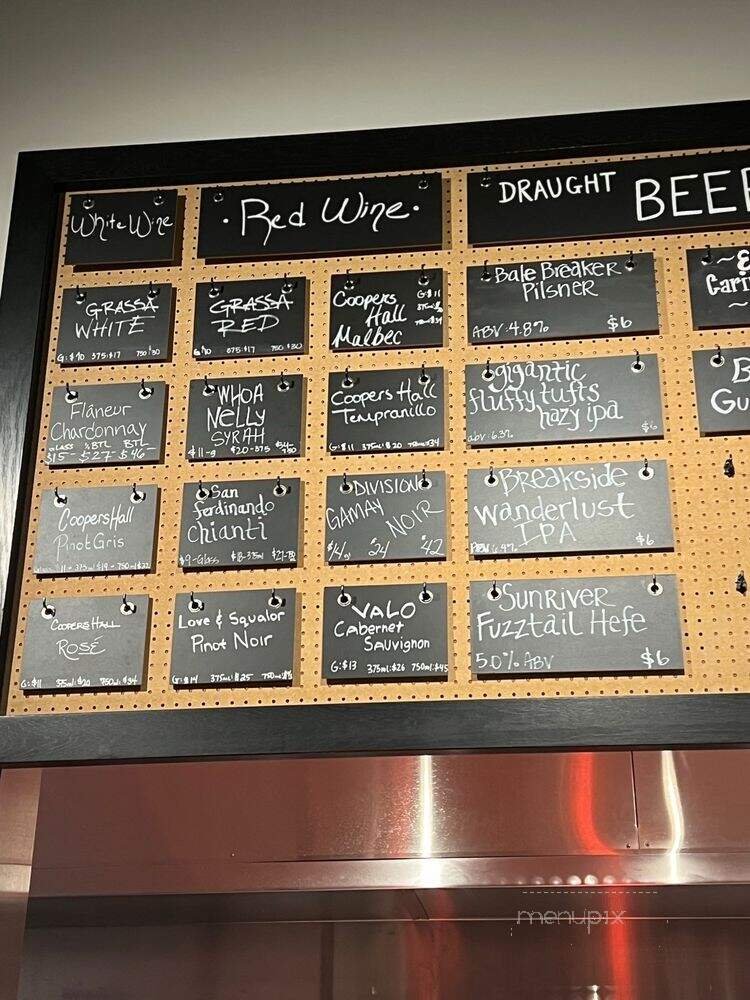 White Wine
GRASSA
WHITE
G: $10 375:$17 750:$30
Flâneur
Chardonnay
GLASS ½ BTL BTL
$15- $27- $46-
Coopers Hall
Pinot Gris
11 - 375ml $19 - 750ml $32
COOPERS HALL
ROSÉ
G: $11 375ml: $20 750ml: $34
· Red Wine ·
GRASSA
RED
$10 375:$17 750:$30
WHOA
NELLY
SYRAH
$11-g $20-375
San
ferdinando
Chianti
$9-Glass $18-375ml
Love & Squalor
Pinot Noir
G: $14 375ml: $25
Coopers
Hall
Malbec
G: $11
Coopers Hall
Tempranillo
G: $11 375ml: $20 750ml: $34
DIVISION
GAMAY NOIR
$14 $24 $42
VALO
Cabernet
Sauvignon
G: $13 375ml: $26 750ml: $45
DRAUGHT BEE
Bale Breaker
Pilsner
ABV: 4.8% $6
gigantic
fluffy tufts
hazy ipa
abv: 6.3% $6
Breakside
Wanderlust
IPA
$6
SUNRIVER
Fuzztail Hefe
5.0% ABV $6
Gu
menupix